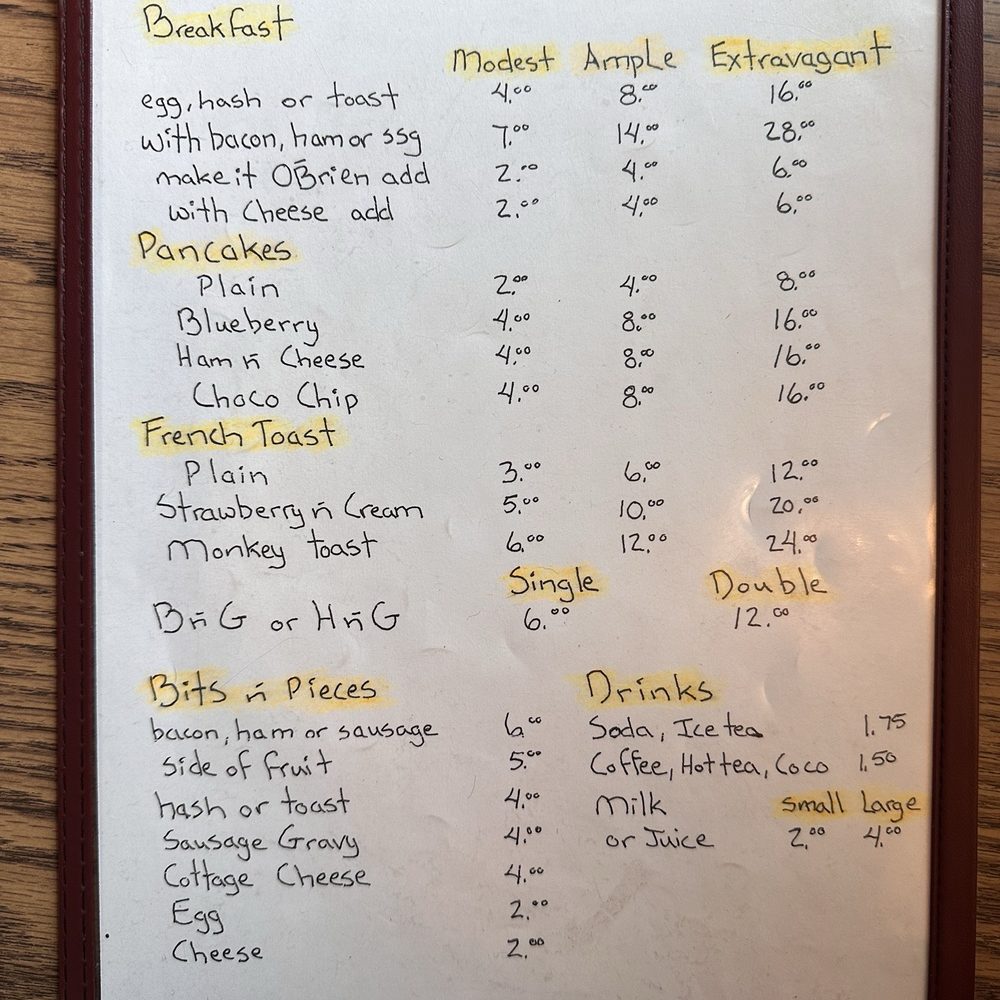 Breakfast
Modest Ample Extravagant
egg, hash or toast 4.00 8.00 16.00
with bacon, ham or ssg 7.00 14.00 28.00
make it O'Brien add 2.00 4.00 6.00
with Cheese add 2.00 4.00 6.00
Pancakes
Plain 2.00 4.00 8.00
Blueberry 4.00 8.00 16.00
Ham ñ Cheese 4.00 8.00 16.00
Choco Chip 4.00 8.00 16.00
French Toast
Plain 3.00 6.00 12.00
Strawberry ñ Cream 5.00 10.00 20.00
Monkey toast 6.00 12.00 24.00
Single Double
B ñ G or H ñ G 6.00 12.00
Bits ñ Pieces
bacon, ham or sausage 6.00
side of fruit 5.00
hash or toast 4.00
Sausage Gravy 4.00
Cottage Cheese 4.00
Egg 2.00
Cheese 2.00
Drinks
Soda, Ice tea 1.75
Coffee, Hot tea, Coco 1.50
Milk small Large
or Juice 2.00 4.00